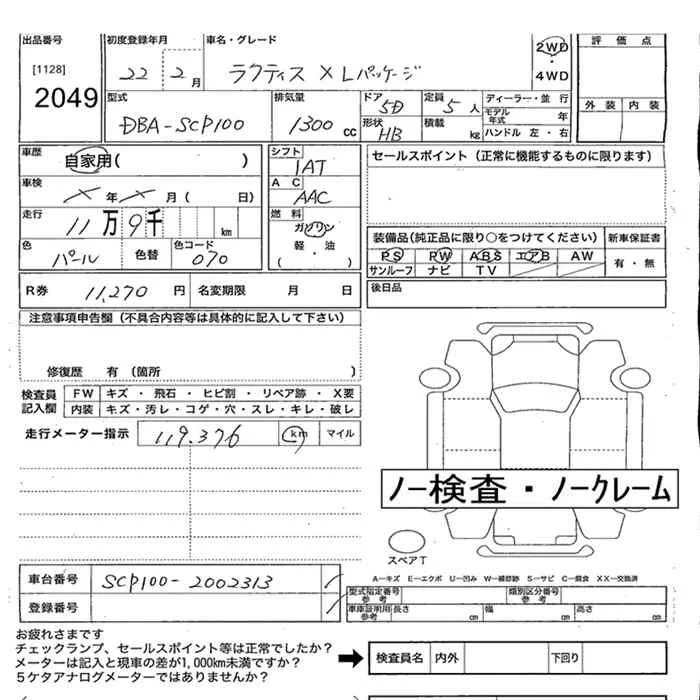 出品番号 初度登録年月 車名・グレード 2WD・4WD 評価点
[1128]
2049
22年 2月 ラクティス X Lパッケージ
外装 内装
型式 排気量 ドア 5D 定員 5人 ディーラー・並行
DBA-SCP100 1300cc 形状 HB 積載 kg モデル年式 年
ハンドル 左・右
車歴 自家用( ) シフト IAT セールスポイント(正常に機能するものに限ります)
車検 X年X月( 日) AC AAC
走行 11万9千 km 燃料 ガソリン 軽・油 ( )
装備品(純正品に限り○をつけてください) 新車保証書
色 パール 色替 色コード 070
PS PW ABS エアB AW 有・無
サンルーフ ナビ TV
R券 11,270円 名変期限 月 日 後日品
注意事項申告欄(不具合内容等は具体的に記入して下さい)
修復歴 有(箇所 )
検査員記入欄 FW キズ・飛石・ヒビ割・リペア跡・X要
内装 キズ・汚レ・コゲ・穴・スレ・キレ・破レ
走行メーター指示 119,376 km マイル
ノー検査・ノークレーム
スペアT
A―キズ E―エクボ U―凹み W―補修跡 S―サビ C―腐食 XX―交換済
車台番号 SCP100-2002313
型式指定番号 参考 類別区分番号 参考
登録番号 車庫証明用 参考 長さ cm 幅 cm 高さ cm
お疲れさまです
チェックランプ、セールスポイント等は正常でしたか?
メーターは記入と現車の差が1,000km未満ですか?
5ケタアナログメーターではありませんか?
検査員名 内外 下回り